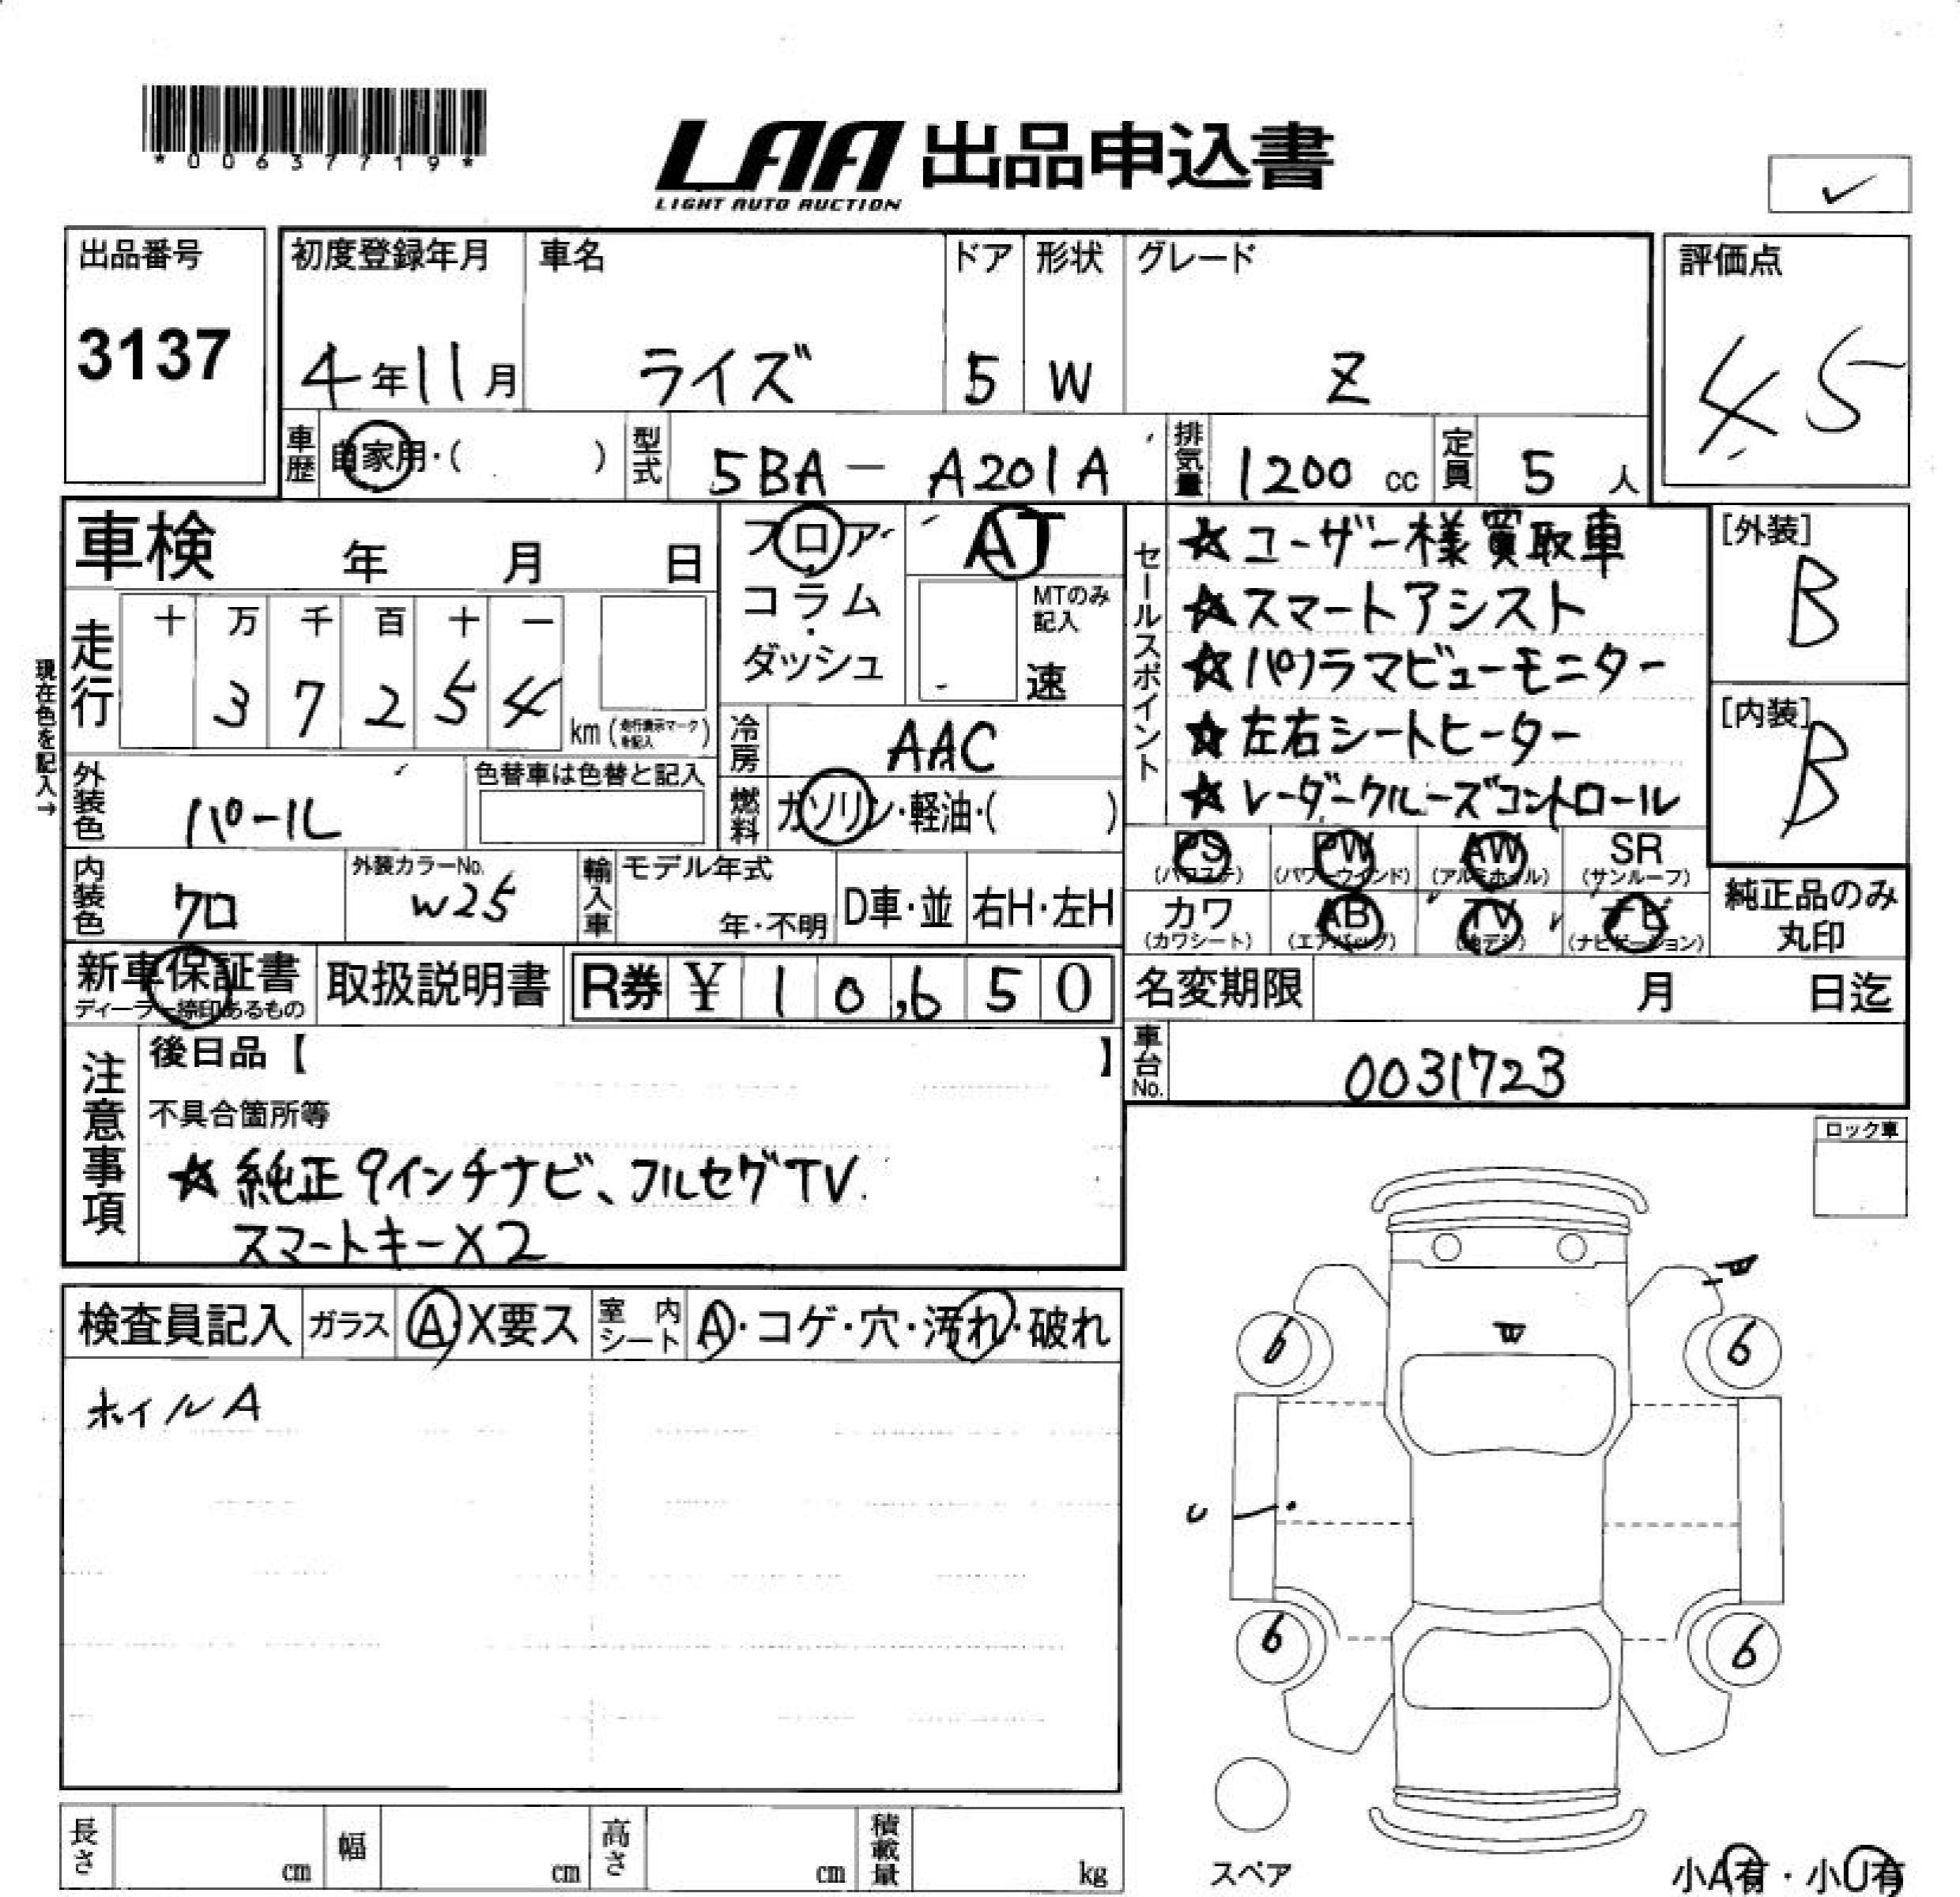 *00637719*
LAA 出品申込書
LIGHT AUTO AUCTION
✓
出品番号
3137
初度登録年月
4年11月
車名
ライズ
ドア
5
形状
W
グレード
Z
評価点
4.5
車歴
自家用・( )
型式
5BA-A201A
排気量
1200 cc
定員
5 人
車検 年 月 日
フロア・
コラム・
ダッシュ
AT
MTのみ記入
速
セールスポイント
☆ユーザー様買取車
☆スマートアシスト
☆パノラマビューモニター
☆左右シートヒーター
☆レーダークルーズコントロール
[外装]
B
[内装]
B
現在色を記入→
走行
十 万 千 百 十 一
3 7 2 5 4
km(走行表示マークを記入)
冷房
AAC
燃料
ガソリン・軽油・( )
外装色
パール
色替車は色替と記入
内装色
クロ
外装カラーNo.
W25
輸入車
モデル年式
年・不明
D車・並
右H・左H
PS
(パワステ)
PW
(パワーウインド)
AW
(アルミホイル)
SR
(サンルーフ)
カワ
(カワシート)
AB
(エアバッグ)
TV
(地デジ)
ナビ
(ナビゲーション)
純正品のみ
丸印
新車保証書
ディーラー捺印あるもの
取扱説明書
R券 ¥ 10,650
名変期限 月 日迄
車台No.
0031723
注意事項
後日品【 】
不具合箇所等
☆純正9インチナビ、フルセグTV.
スマートキーX2
ロック車
検査員記入
ガラス
A・X要ス
室内シート
A・コゲ・穴・汚れ・破れ
ホイルA
W
W
6
6
U
6
6
スペア
長さ cm
幅 cm
高さ cm
積載量 kg
小A有・小U有